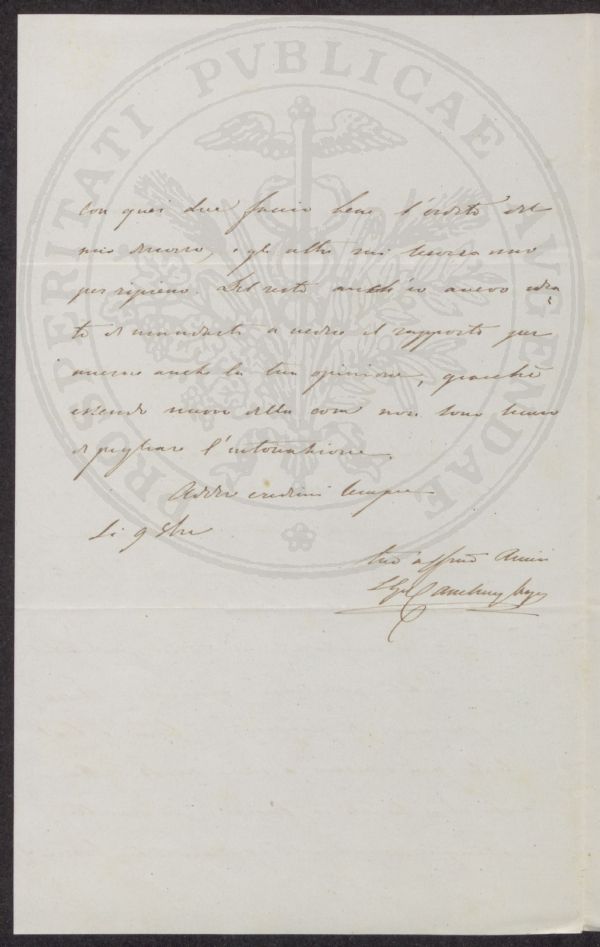 PROSPERITATI PVBLICAE AVGENDAE
con quei due faccio bene l'ordito del
mio discorso, e gli altri mi
per ripieno. Del resto anch'io avevo idea
to di mandarti a vedere il rapporto per
averne anche la tua opinione, giacchè
essendo nuovo della cosa non sono sicuro
di pigliare l'intonazione.
Addio credimi sempre
Li 9
tuo affmo Amico